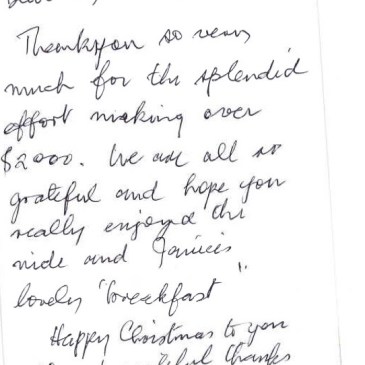 Thankyou so very
much for the splendid
effort making over
$2000. We are all so
grateful and hope you
really enjoyed the
ride and Janice's
lovely "breakfast"!
Happy Christmas to you
thanks